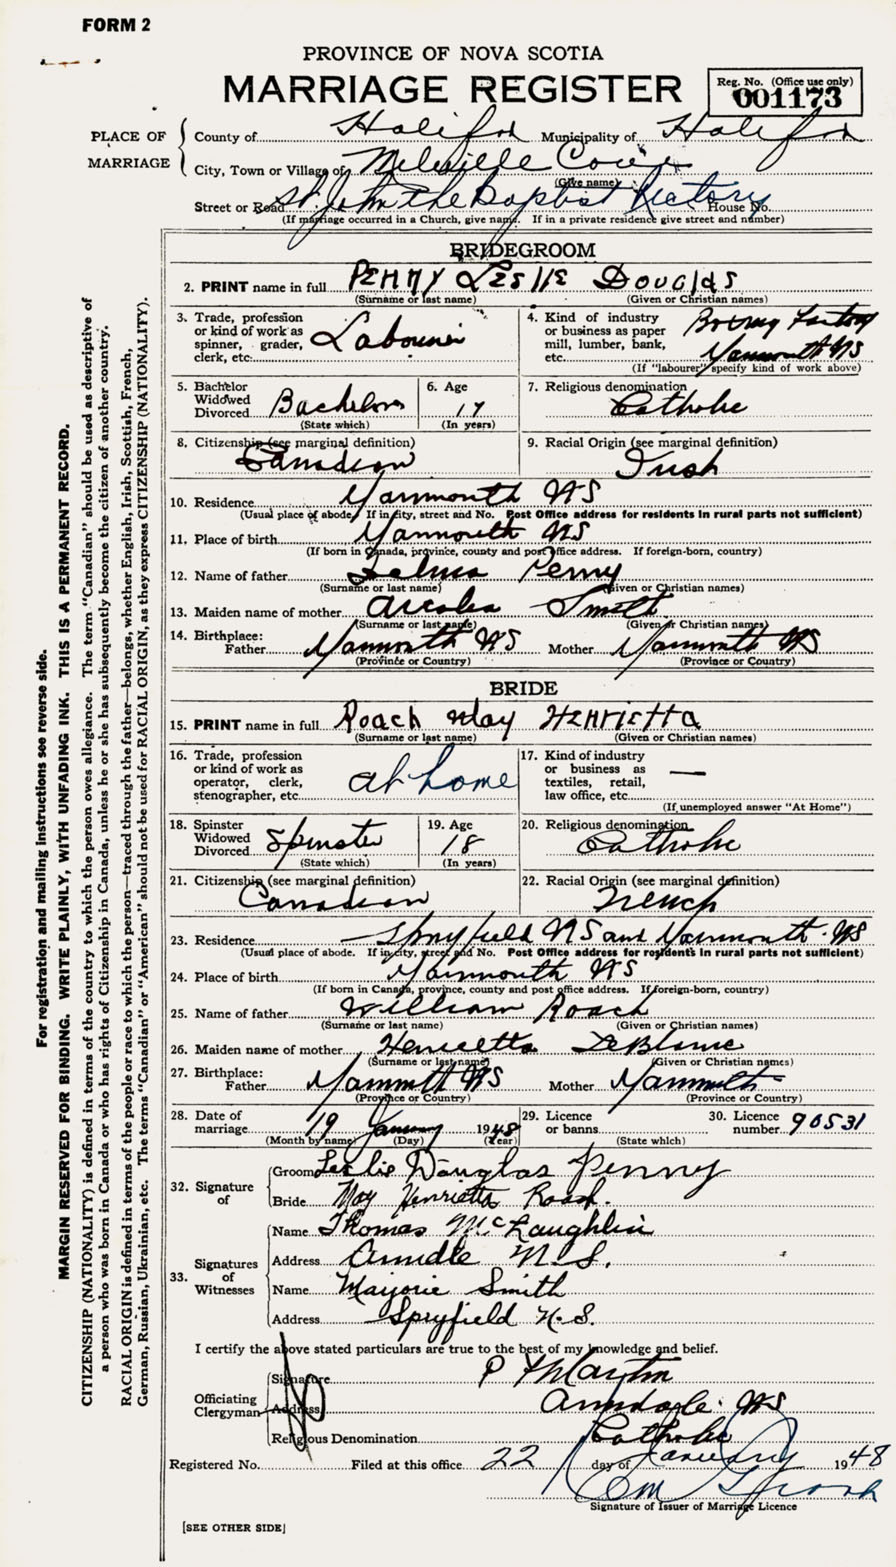 FORM 2
PROVINCE OF NOVA SCOTIA
MARRIAGE REGISTER
Reg. No. (Office use only)
001173
PLACE OF MARRIAGE
County of Halifax Municipality of Halifax
City, Town or Village of Melville Cove
(Give name)
Street or Road St. John the Baptist Rectory House No.
(If marriage occurred in a Church, give name. If in a private residence give street and number)
BRIDEGROOM
2. PRINT name in full PENNY LESLIE DOUGlas
(Surname or last name) (Given or Christian names)
3. Trade, profession or kind of work as spinner, grader, clerk, etc. Labourer
4. Kind of industry or business as paper mill, lumber, bank, etc. Factory Yarmouth NS
(If "labourer" specify kind of work above)
5. Bachelor Widowed Divorced Bachelor
(State which)
6. Age 17
(In years)
7. Religious denomination Catholic
8. Citizenship (see marginal definition) Canadian
9. Racial Origin (see marginal definition) Irish
10. Residence Yarmouth NS
(Usual place of abode. If in city, street and No. Post Office address for residents in rural parts not sufficient)
11. Place of birth Yarmouth NS
(If born in Canada, province, county and post office address. If foreign-born, country)
12. Name of father Penny
(Surname or last name) (Given or Christian names)
13. Maiden name of mother Smith
(Surname or last name) (Given or Christian names)
14. Birthplace: Father Yarmouth NS Mother Yarmouth NS
(Province or Country) (Province or Country)
BRIDE
15. PRINT name in full Roach May HENRIETTA
(Surname or last name) (Given or Christian names)
16. Trade, profession or kind of work as operator, clerk, stenographer, etc. at home
17. Kind of industry or business as textiles, retail, law office, etc. —
(If unemployed answer "At Home")
18. Spinster Widowed Divorced Spinster
(State which)
19. Age 18
(In years)
20. Religious denomination Catholic
21. Citizenship (see marginal definition) Canadian
22. Racial Origin (see marginal definition) French
23. Residence Spryfield NS and Yarmouth NS
(Usual place of abode. If in city, street and No. Post Office address for residents in rural parts not sufficient)
24. Place of birth Yarmouth NS
(If born in Canada, province, county and post office address. If foreign-born, country)
25. Name of father William Roach
(Surname or last name) (Given or Christian names)
26. Maiden name of mother Henrietta
(Surname or last name) (Given or Christian names)
27. Birthplace: Father Yarmouth NS Mother Yarmouth
(Province or Country) (Province or Country)
28. Date of marriage 19 January 1948
(Month by name) (Day) (Year)
29. Licence or banns
(State which)
30. Licence number 90531
32. Signature of
Groom Leslie Douglas Penny
Bride May Henrietta Roach.
33. Signatures of Witnesses
Name Thomas McLaughlin
Address Armdale N.S.
Name Marjorie Smith
Address Spryfield N.S.
I certify the above stated particulars are true to the best of my knowledge and belief.
Officiating Clergyman
Signature Martin
Address Armdale NS
Religious Denomination Catholic
Registered No. Filed at this office 22 day of January 1948
Signature of Issuer of Marriage Licence
[SEE OTHER SIDE]
For registration and mailing instructions see reverse side.
MARGIN RESERVED FOR BINDING. WRITE PLAINLY, WITH UNFADING INK. THIS IS A PERMANENT RECORD.
CITIZENSHIP (NATIONALITY) is defined in terms of the country to which the person owes allegiance. The term "Canadian" should be used as descriptive of
a person who was born in Canada or who has rights of Citizenship in Canada, unless he or she has subsequently become the citizen of another country.
RACIAL ORIGIN is defined in terms of the people or race to which the person—traced through the father—belongs, whether English, Irish, Scottish, French,
German, Russian, Ukrainian, etc. The terms "Canadian" or "American" should not be used for RACIAL ORIGIN, as they express CITIZENSHIP (NATIONALITY).